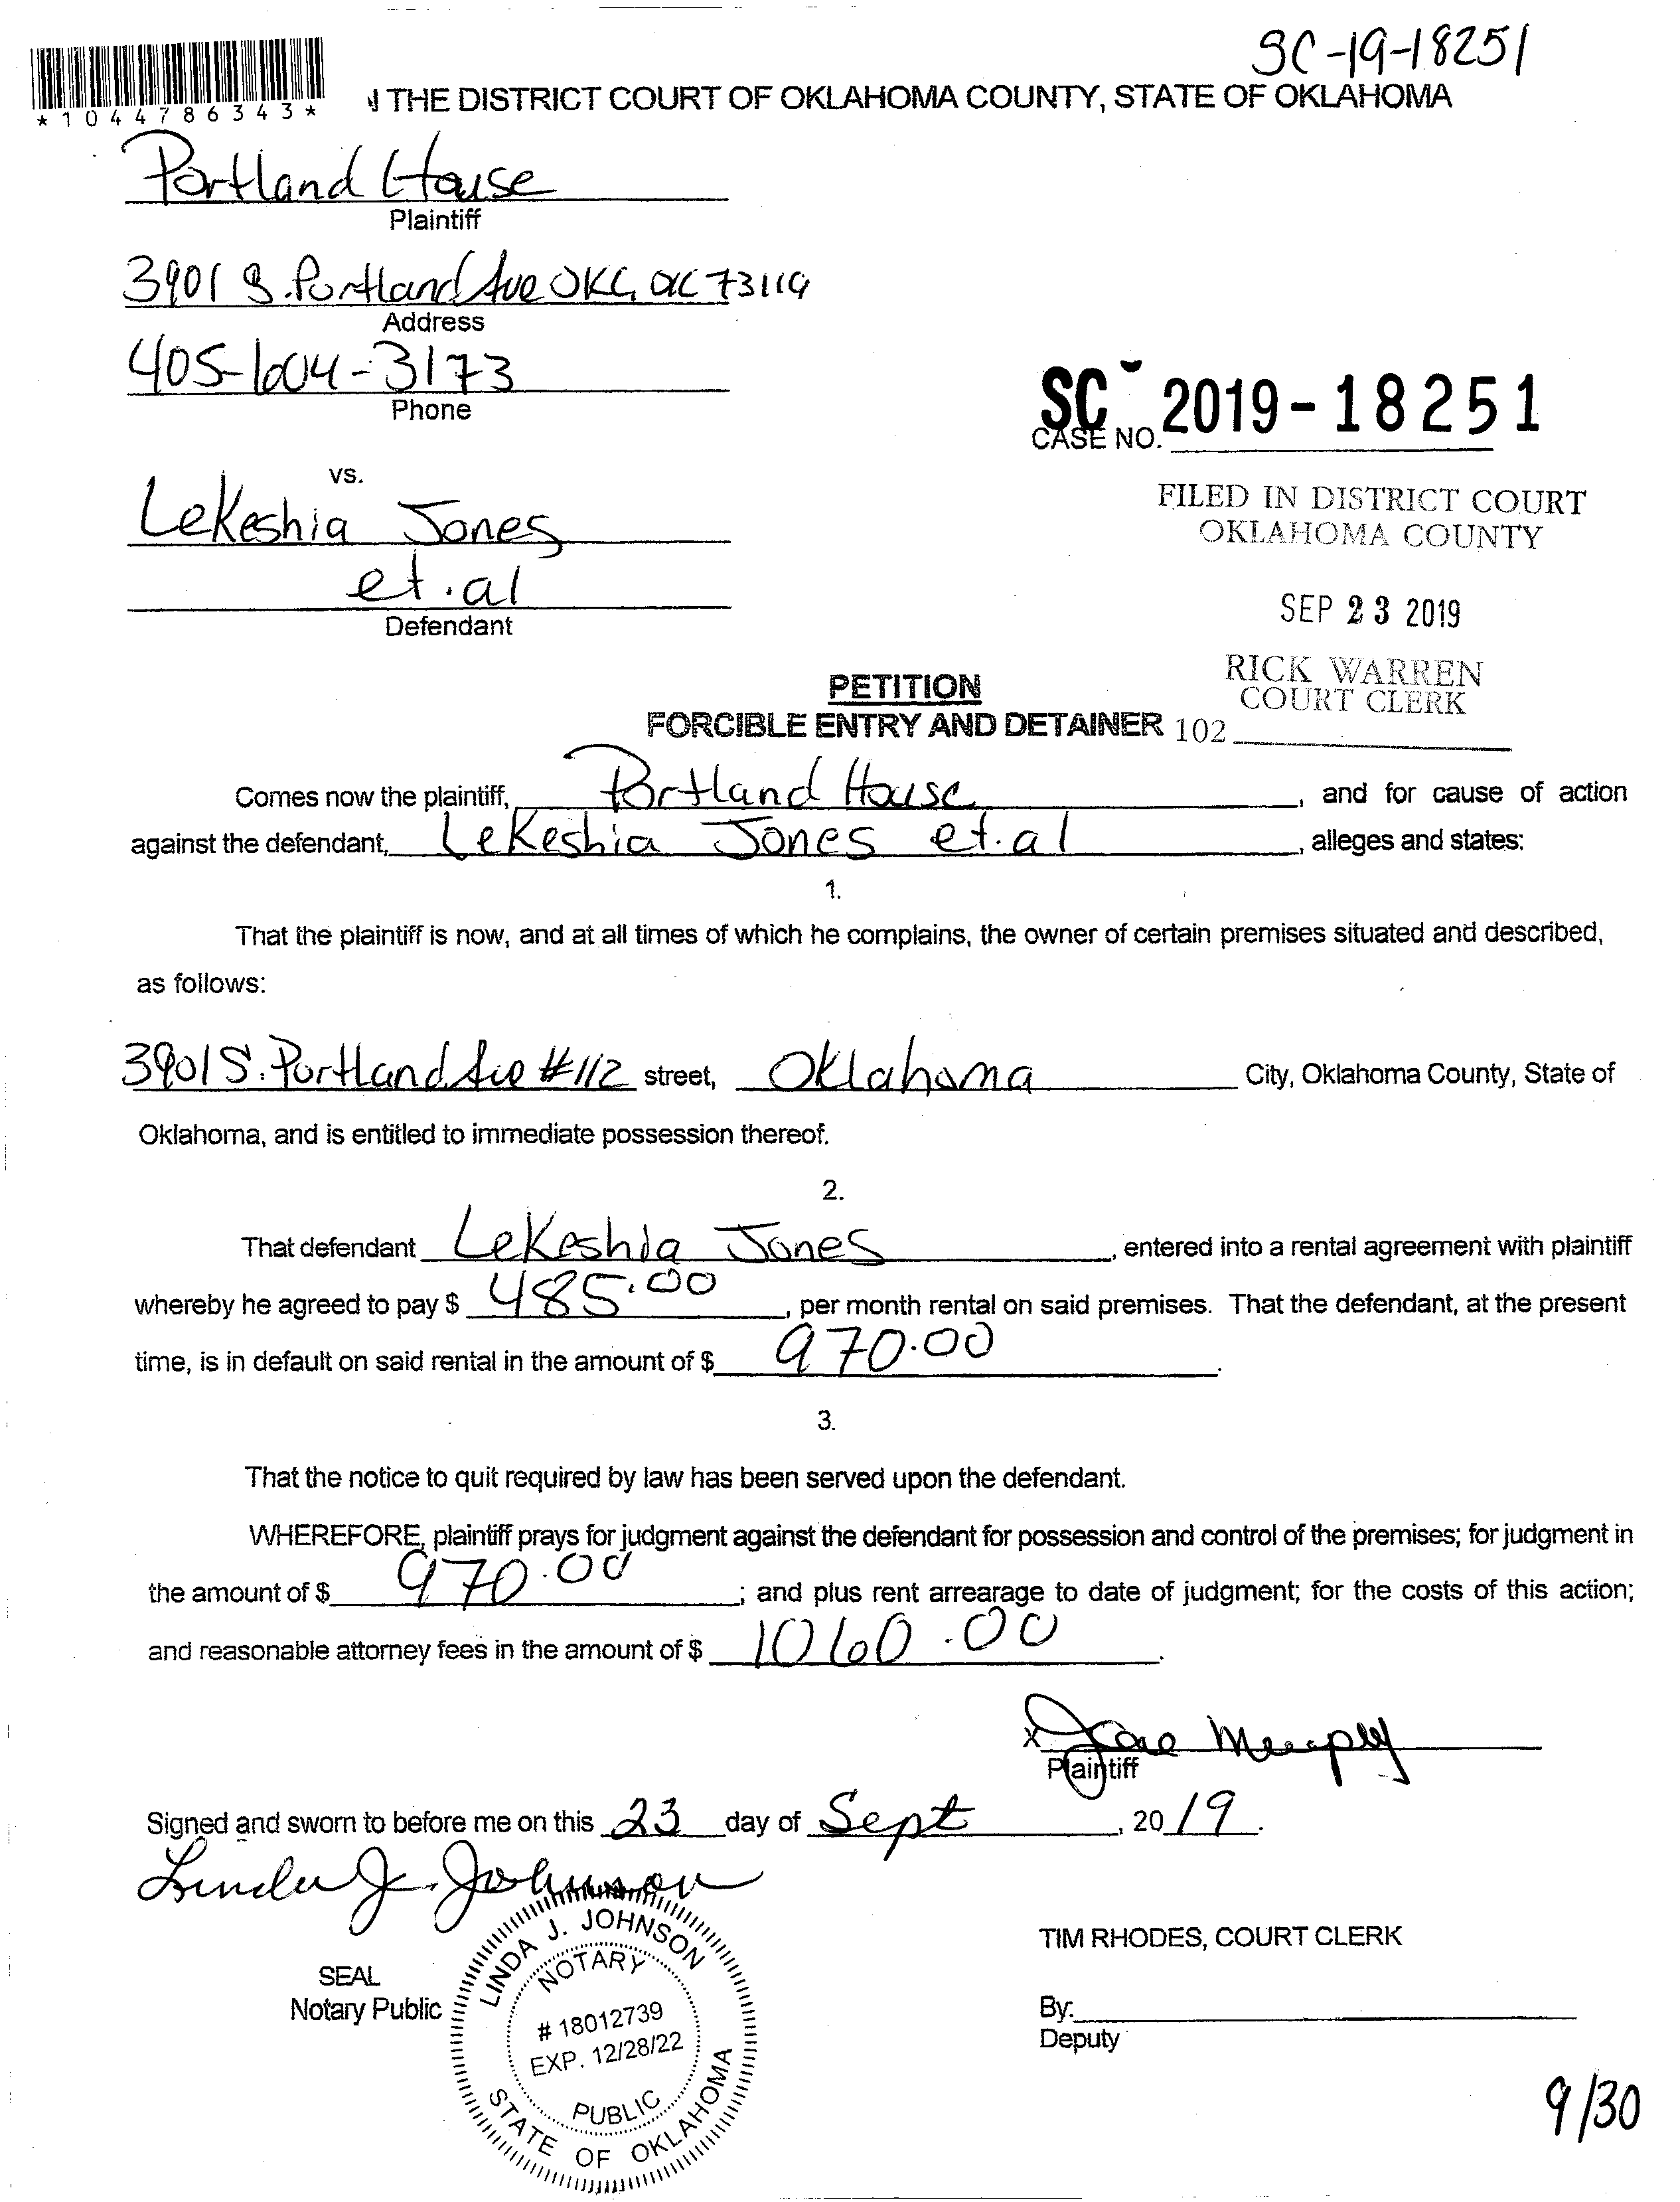 SC-19-18251
*1044786343*
N THE DISTRICT COURT OF OKLAHOMA COUNTY, STATE OF OKLAHOMA
Portland House
Plaintiff
3901 S. Portland Ave OKC, OK 73119
Address
405-604-3173
Phone
SC 2019-18251
CASE NO.
vs.
LeKeshia Jones
et.al
Defendant
FILED IN DISTRICT COURT
OKLAHOMA COUNTY
SEP 23 2019
RICK WARREN
COURT CLERK
PETITION
FORCIBLE ENTRY AND DETAINER 102
Comes now the plaintiff, Portland House, and for cause of action
against the defendant, LeKeshia Jones et.al, alleges and states:
1.
That the plaintiff is now, and at all times of which he complains, the owner of certain premises situated and described,
as follows:
3901 S. Portland Ave #112 street, Oklahoma City, Oklahoma County, State of
Oklahoma, and is entitled to immediate possession thereof.
2.
That defendant LeKeshia Jones, entered into a rental agreement with plaintiff
whereby he agreed to pay $ 485.00, per month rental on said premises. That the defendant, at the present
time, is in default on said rental in the amount of $ 970.00.
3.
That the notice to quit required by law has been served upon the defendant.
WHEREFORE, plaintiff prays for judgment against the defendant for possession and control of the premises; for judgment in
the amount of $ 970.00; and plus rent arrearage to date of judgment; for the costs of this action;
and reasonable attorney fees in the amount of $ 1060.00.
x Jane Murphy
Plaintiff
Signed and sworn to before me on this 23 day of Sept, 2019.
Linda J. Johnson
SEAL
Notary Public
LINDA J. JOHNSON
NOTARY
# 18012739
EXP. 12/28/22
PUBLIC
STATE OF OKLAHOMA
TIM RHODES, COURT CLERK
By:
Deputy
9/30